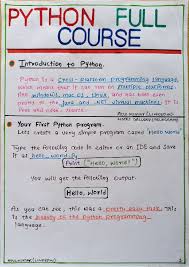 PYTHON FULL
COURSE
Introduction to Python.
Python is a cross-platform programming language,
which means that it can run on multiple platforms
like windows, mac OS, Linux, and has even been
ported to the Java and .NET virtual machines. It is
free and open-source.
Your First Python program.
Let's create a very simple program called "Hello World"
Type the following code in editor or an IDE and Save
it as hello_world.py
Print ("Hello, World!")
You will get the following Output.
Hello, World
As you can see, this was a pretty easy task. This
is the beauty of the Python programming
language.